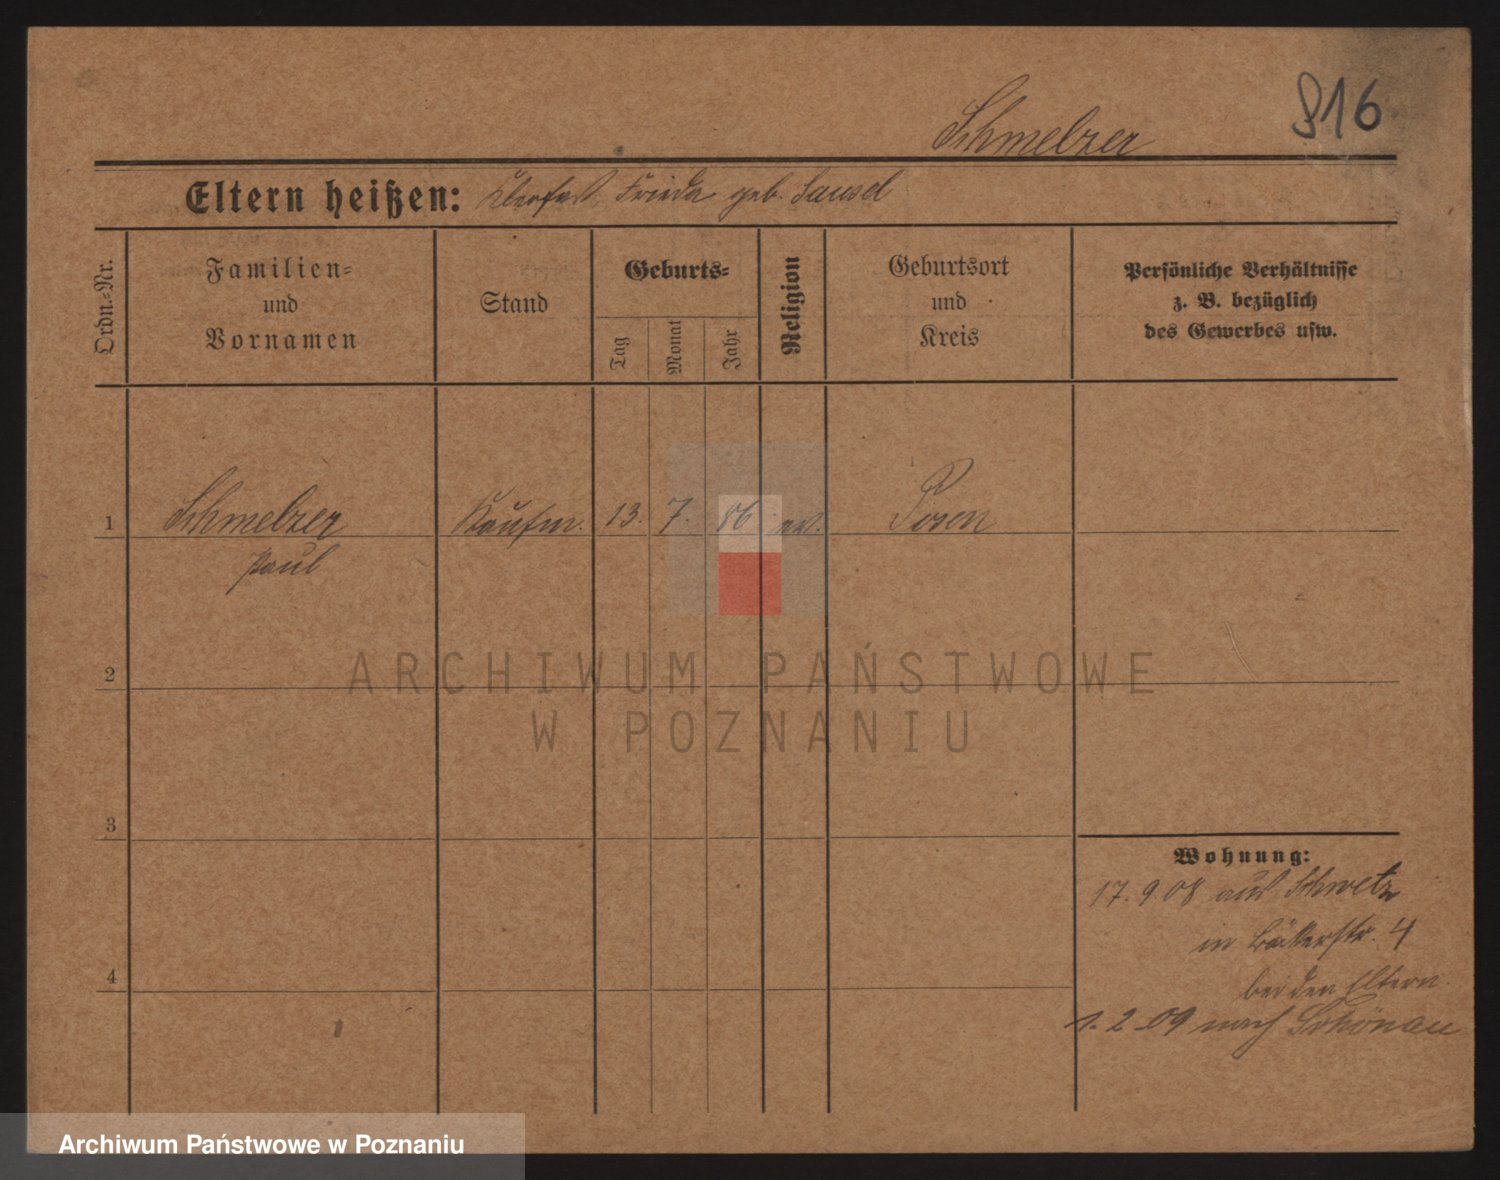 816
Schmelzer
Eltern heißen: Frieda geb.
Ordn.=Nr.
Familien=
und
Vornamen
Stand
Geburts=
Tag
Monat
Jahr
Religion
Geburtsort
und
Kreis
Persönliche Verhältnisse
z. B. bezüglich
des Gewerbes usw.
1 Schmelzer Kaufm. 13. 7. 86 ev. Posen
Paul
2
3
4
Wohnung:
17. 9. 08 aus Schwetz
in Bäckerstr. 4
bei den Eltern.
1. 2. 09 nach Schönau
ARCHIWUM PAŃSTWOWE
W POZNANIU
Archiwum Państwowe w Poznaniu